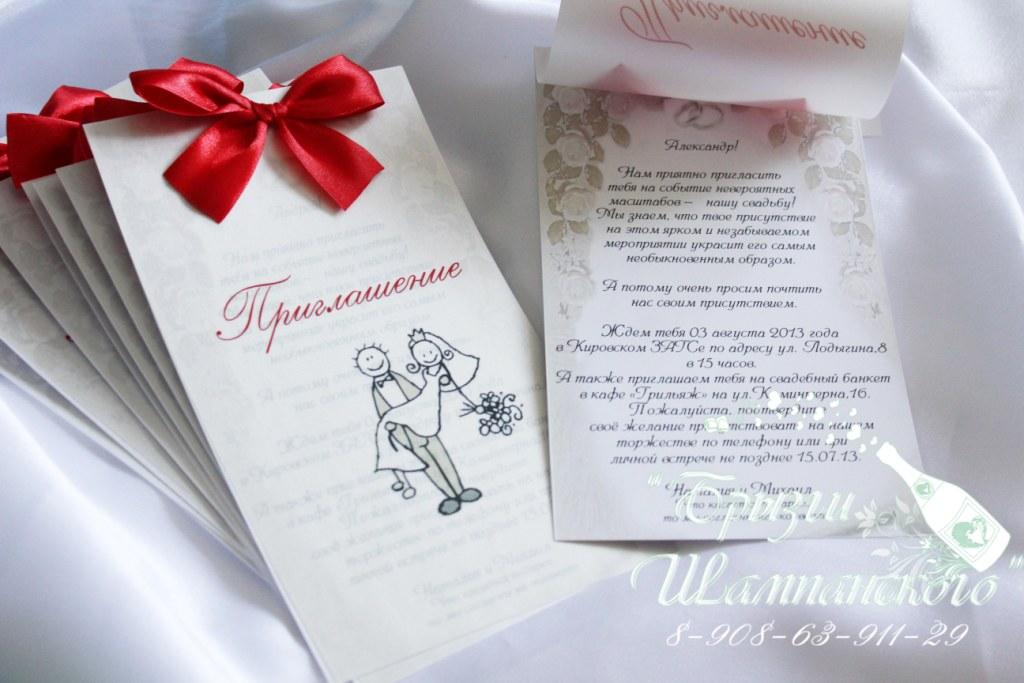 Приглашение
Приглашение
Александр!
Нам приятно пригласить
тебя на событие невероятных
масштабов – нашу свадьбу!
Мы знаем, что твое присутствие
на этом ярком и незабываемом
мероприятии украсит его самым
необыкновенным образом.
А потому очень просим почтить
нас своим присутствием.
Ждем тебя 03 августа 2013 года
в Кировском ЗАГСе по адресу ул. Лодыгина,8
в 15 часов.
А также приглашаем тебя на свадебный банкет
в кафе «Грильяж» на ул.Коминтерна,16.
Пожалуйста, подтвердите
своё желание присутствовать на нашем
торжестве по телефону или при
личной встрече не позднее 15.07.13.
Наталия и Михаил
"Брызги
Шампанского"
8-908-63-911-29